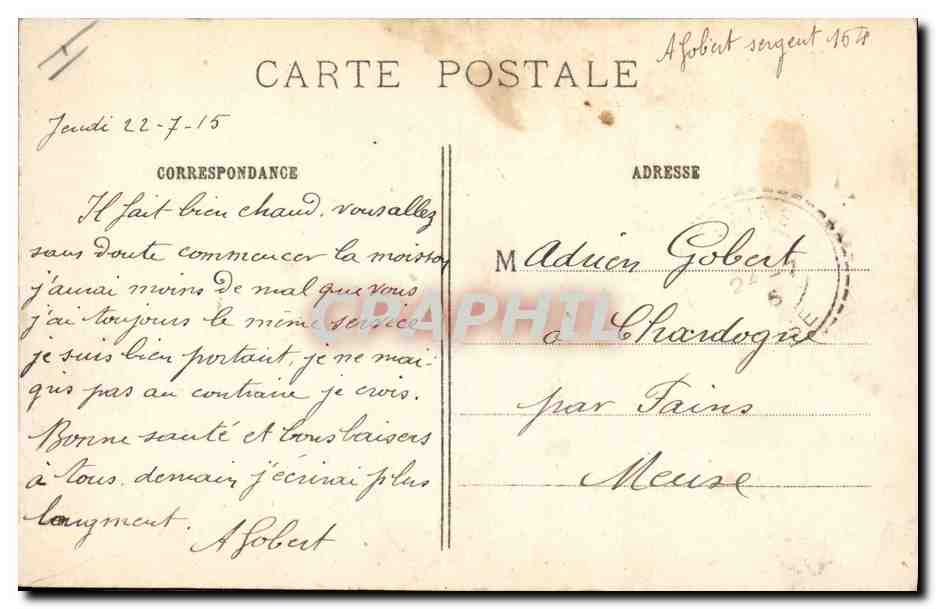 A Gobert sergent 154
CARTE POSTALE
Jeudi 22-7-15
CORRESPONDANCE
Il fait bien chaud. vous allez
sans doute commencer la moisson
j'aurai moins de mal que vous
j'ai toujours le même service
je suis bien portant, je ne mai-
gris pas au contraire je crois.
Bonne santé et bons baisers
à tous. demain j'écrirai plus
longment.
A Gobert
ADRESSE
M Adrien Gobert
à Chardogne
par Fains
Meuse
CRAPHIL